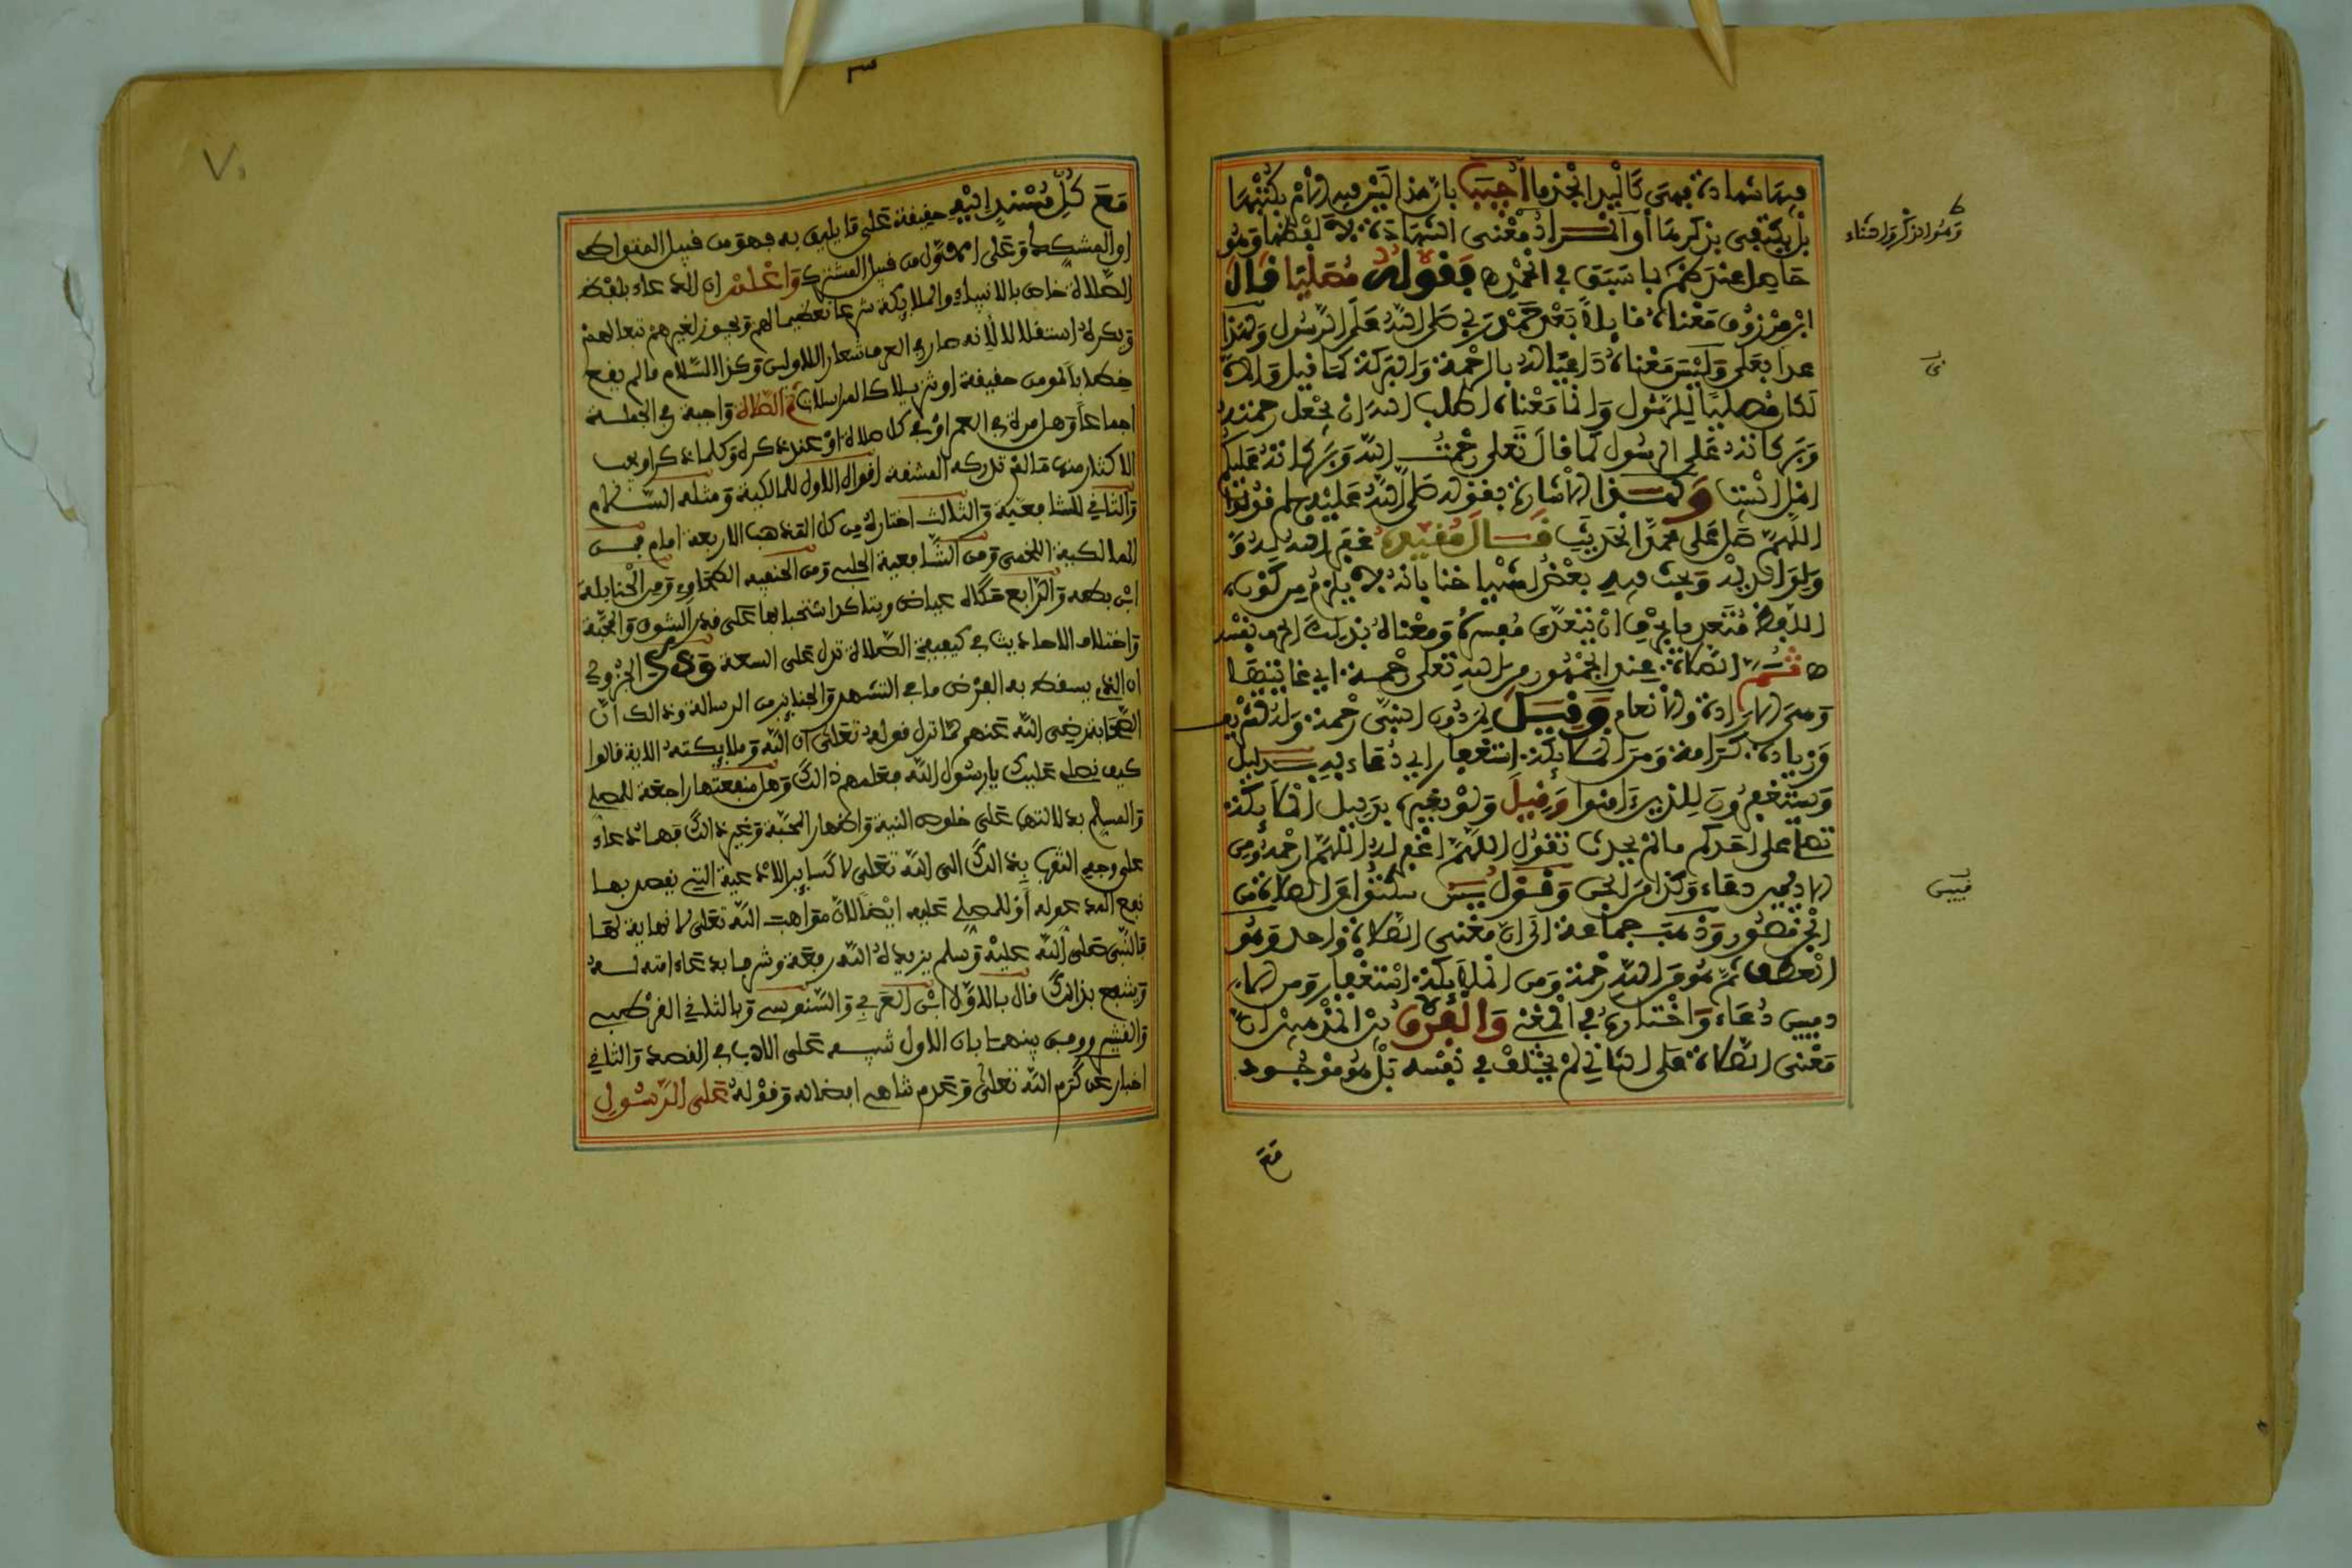 فيها شهادة فهي كاليد الجذما أجيب بأن هذا ليس فيه الأمر بكتبها
بل يكتفى بذكرها أو المراد معنى الشهادة لا لفظها وهو
حاصل عند كم بما سبق في الحمد فقوله مصليا قال
ابن مرزوق معناه قائلا بعد حمد ربي صلى الله على الرسول ولهذا
عدا بعلى وليس معناه داعيا له بالرحمة والبركة كما قيل وإلا
لكان مصليا للرسول وإنما معناه أطلب الله أن يجعل رحمته
وبركاته على الرسول كما قال تعلى رحمت الله وبركاته عليكم
أهل البيت وكذا الإشارة بقوله صلى الله عليه وسلم قولوا
اللهم صل على محمد الحديث قال مقيده غفر الله له و
ولوالديه وبحث فيه بعض أشياخنا بأنه لا يلزم من كون
اللفظ متعد بالحرف أن يتعدى مفسره ومعناه بذلك الحرف بنفسه
ثم الصلاة عند الجمهور من الله تعلى رحمة أي غايتها
وهي الإرادة والإنعام وقيل لمن دون النبي رحمة وله تشريف
وزيادة كرامة ومن الملائكة استغفار أي دعاء به بدليل
ويستغفرون للذين ءامنوا وقيل ولو بغيره بدليل الملائكة
تصلي على أحدكم ما لم يحدث تقول اللهم اغفر له اللهم ارحمه ومن
الآدميين دعاء وكذا من الجن وقول يس سكتوا عن الصلاة من
الجن قصور وذهب جماعة إلى أن معنى الصلاة واحد وهو
العطف ثم هو من الله رحمة ومن الملائكة استغفار ومن الآ
دميين دعاء واختاره في المغني والفرق بين المذهبين أن
معنى الصلاة على الثاني لم يختلف في نفسه بل هو موجود
مع
مع كل مسند إليه حقيقة على ما يليق به فهو من قبيل المتواطئ
أو المشكك وعلى الأول من قبيل المشترك واعلم أن الدعاء بلفظ
الصلاة خاص بالأنبياء والملائكة شرعا تعظيما لهم ويجوز لغيرهم تبعا لهم
ويكره استقلالا لأنه صار في العرف شعار الأولين وكذا السلام ما لم يقع
خطابا لمؤمن حقيقة أو تنزيلا كالمراسلات ثم الصلاة واجبة في الجملة
إجماعا وهل مرة في العمر أو في كل صلاة أو عند ذكره وكلما ذكر أو يجب
الإكثار منها ما لم تدركه المشقة أقوال الأول للمالكية ومثله السلام
والثاني للشافعية والثالث اختاره من كل المذاهب الأربعة إمام فمن
المالكية اللخمي ومن الشافعية الحليمي ومن الحنفية الطحاوي ومن الحنابلة
ابن بطة والرابع حكاه عياض ويتأكد استحبابها على قدر الشوق والمحبة
واختلاف الأحاديث في كيفية الصلاة تدل على السعة وذكر الجزولي
أن الذي يسقط به الفرض ما في التشهد والجنايز من الرسالة وذالك أن
الصحابة رضي الله عنهم لما نزل قوله تعلى إن الله وملايكته الآية قالوا
كيف نصلي عليك يا رسول الله فعلمهم ذالك وهل منفعتها راجعة للمصلي
والمسلم بدلالتها على خلوص النية وإظهار المحبة وغير ذالك فهما دعاء
على وجه التقرب بذالك إلى الله تعلى لا كساير الأدعية التي يقصد بها
نفع المدعو له أو للمصلي عليه أيضا لأن مواهب الله تعلى لا نهاية لها
فالنبي صلى الله عليه وسلم يزيده الله رفعة وشرفا بدعاء أمته له
ويشفع بذالك قال بالأول ابن العربي والسنوسي وبالثاني القرطبي
والقشيري ووفق بينهما بأن الأول تنبيه على الأدب في القصد والثاني
إخبار عن كرم الله تعلى وعدم تناهي إفضاله وقوله على الرسول